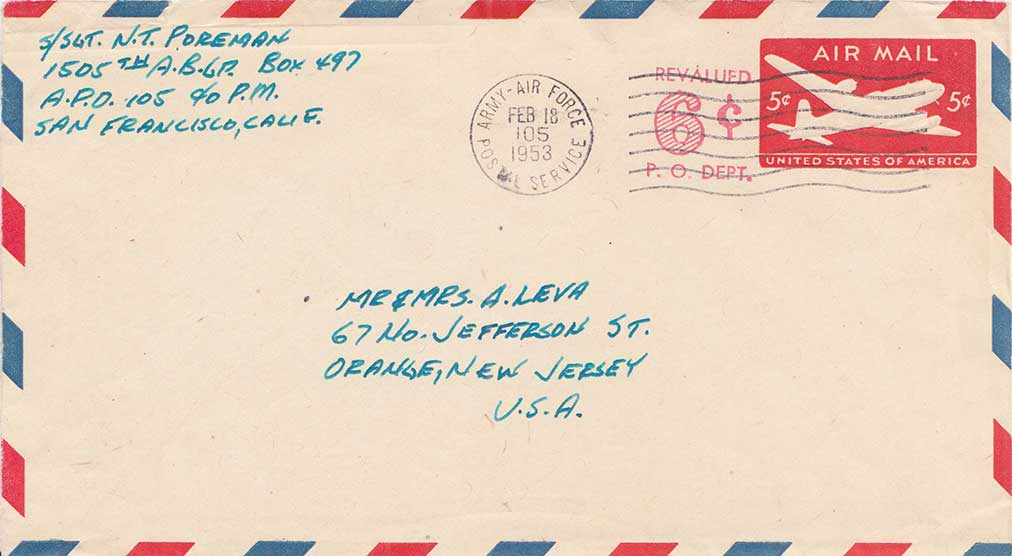 S/SGT. N.T. POREMAN
1505TH A.B.GP. BOX 497
A.P.O. 105 c/o P.M.
SAN FRANCISCO, CALIF.
ARMY-AIR FORCE
FEB 18
105
1953
POSTAL SERVICE
REVALUED
6¢
P. O. DEPT.
AIR MAIL
5¢ 5¢
UNITED STATES OF AMERICA
MR & MRS. A. LEVA
67 NO. JEFFERSON ST.
ORANGE, NEW JERSEY
U.S.A.